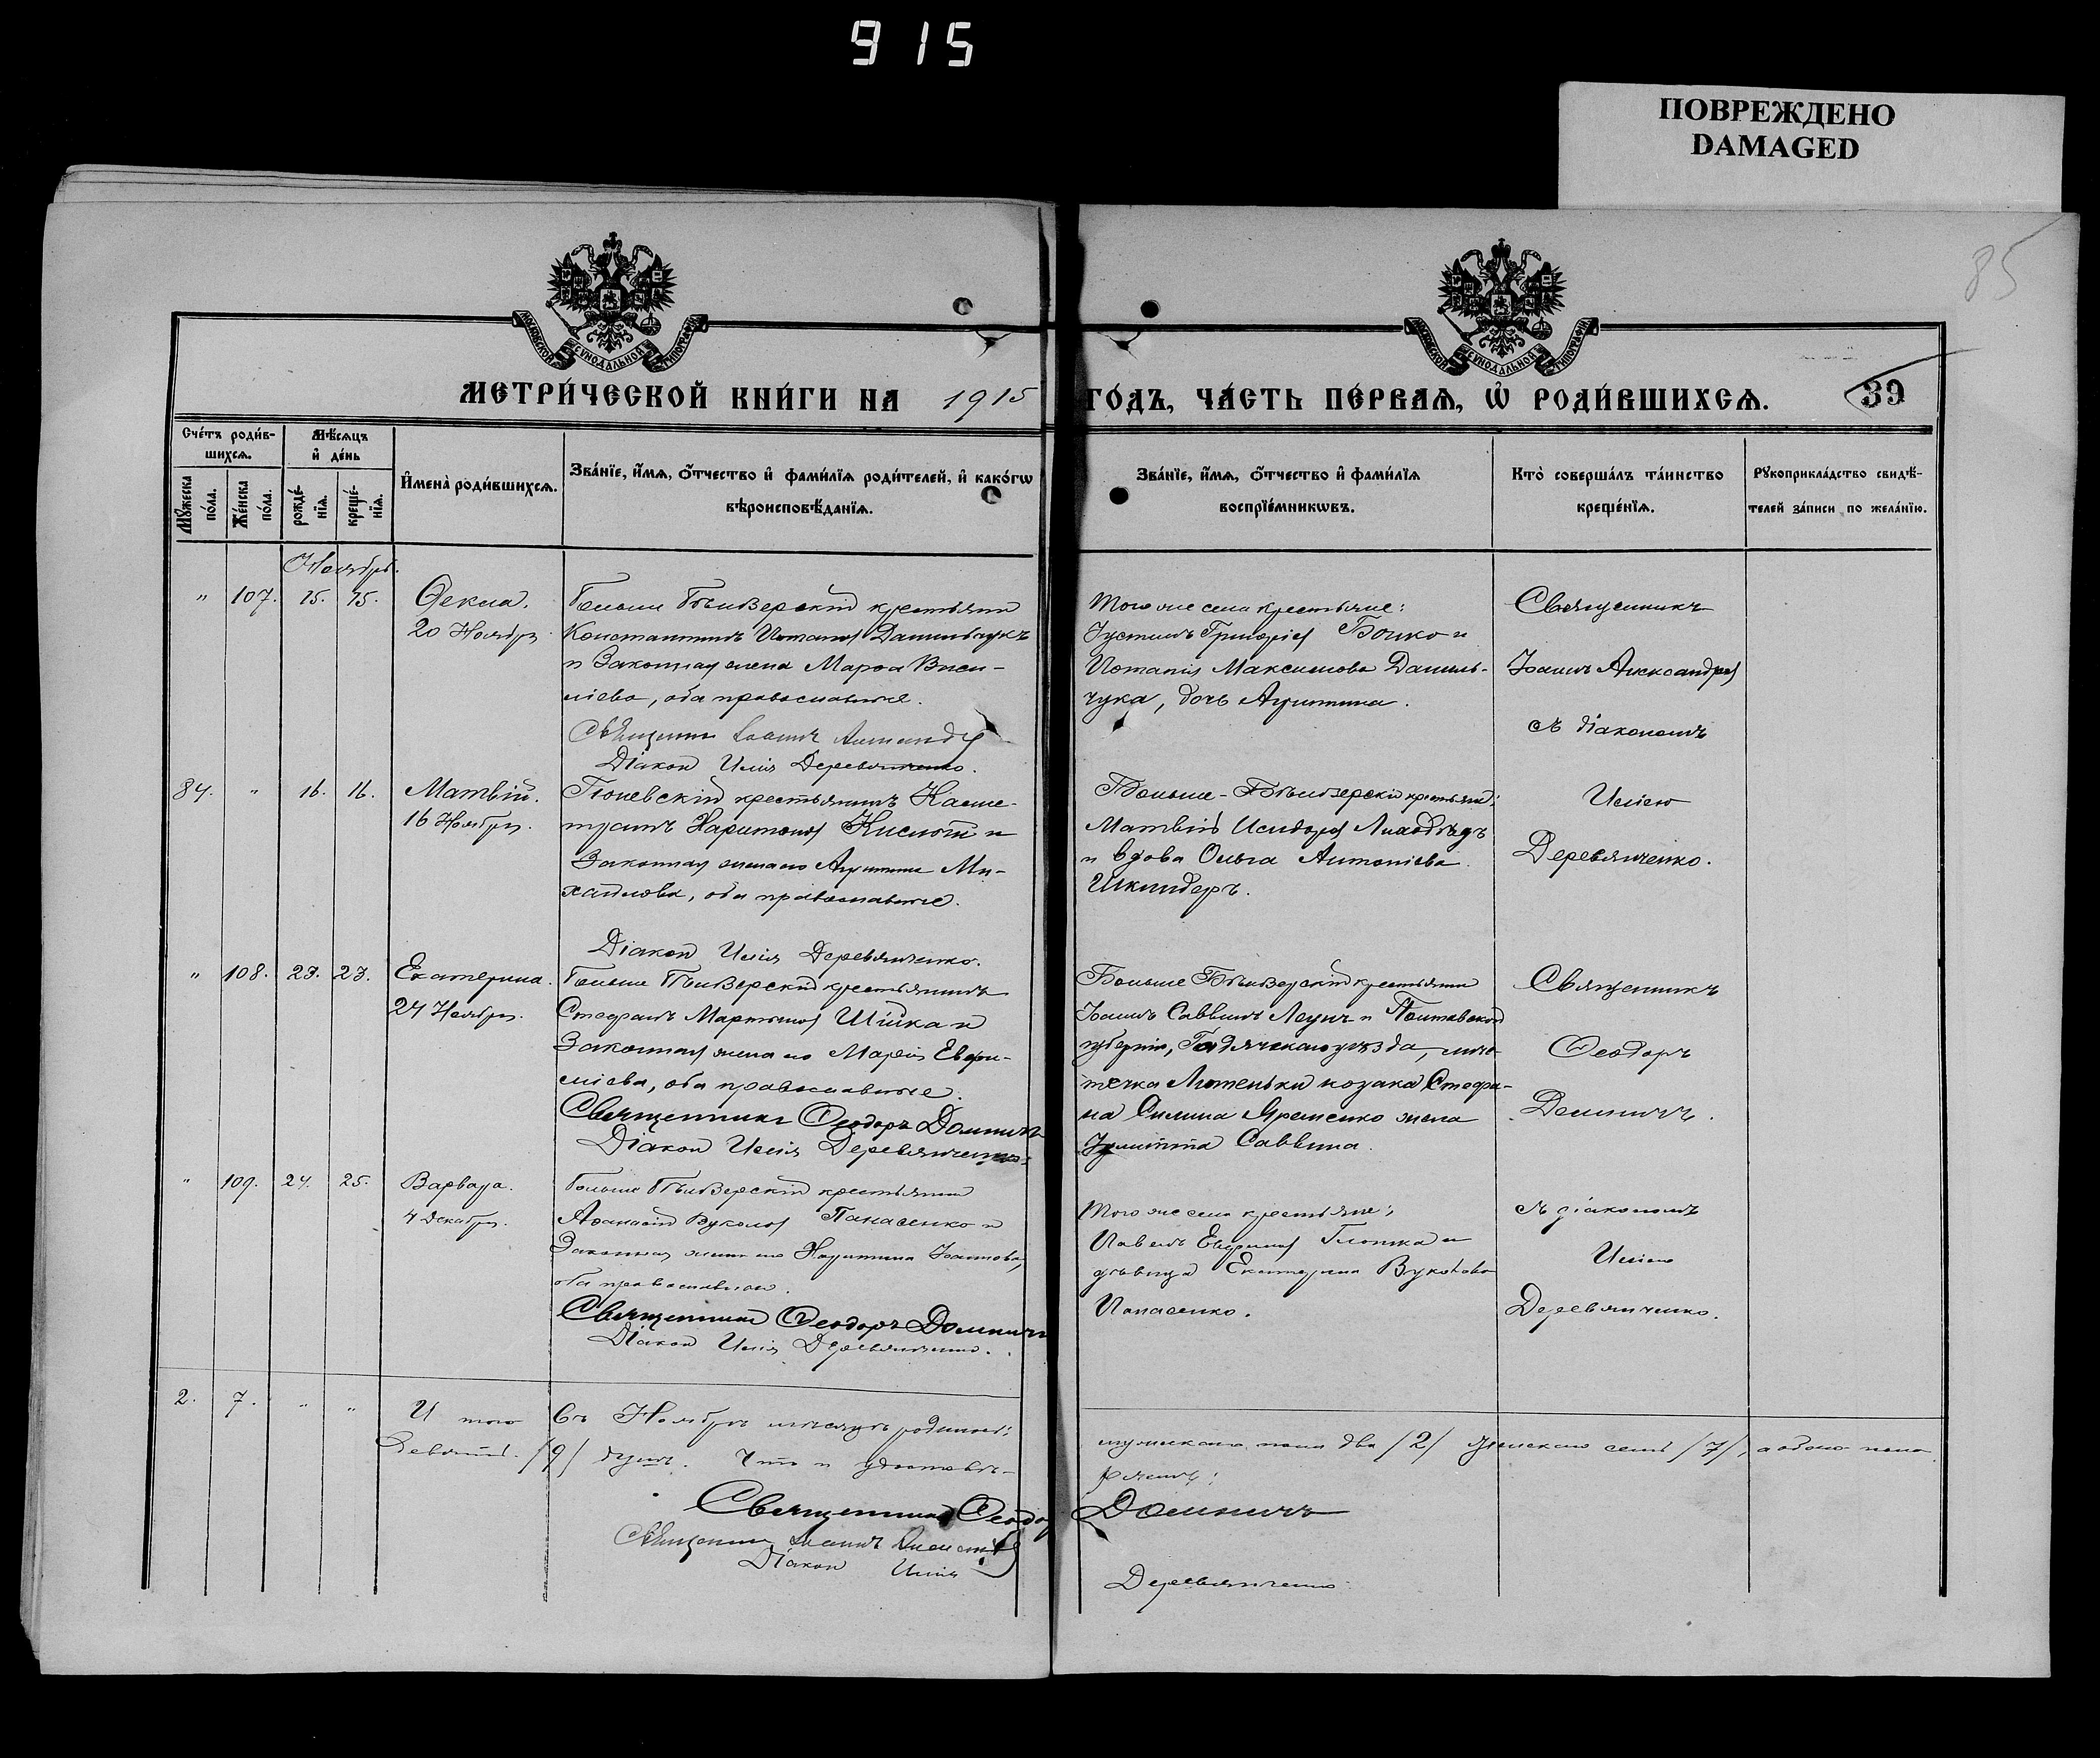 915
ПОВРЕЖДЕНО
DAMAGED
85
МОСКОВСКОЙ СѴНОДАЛЬНОЙ ТИПОГРАФІИ
МОСКОВСКОЙ СѴНОДАЛЬНОЙ ТИПОГРАФІИ
МЕТРИ́ЧЕСКОЙ КНИ́ГИ НА 1915
ГО́ДЪ, ЧА́СТЬ ПЕ́РВАѦ, Ѡ҆ РОДИ́ВШИХСѦ.
39
Сче́тъ роди́в-
шихсѧ.
Мѣ́сѧцъ
и҆ де́нь
Мꙋ́жеска
по́ла.
Же́нска
по́ла.
рожде́-
нїѧ.
креще́-
нїѧ.
И҆мена̀ роди́вшихсѧ.
Зва́нїе, и҆́мѧ, ѻ҆́тчество и҆ фами́лїѧ роди́телей, и҆ како́гѡ
вѣроисповѣ́данїѧ.
Зва́нїе, и҆́мѧ, ѻ҆́тчество и҆ фами́лїѧ
воспрїе́мникѡвъ.
Кто̀ соверша́лъ та́инство
креще́нїѧ.
Рꙋкоприкла́дство свидѣ́-
телей за́писи по жела́нїю.
Ноябрь.
" 107. 15. 15. Ѳекла.
20 Ноября.
Больше Бѣлозерскій крестьянинъ
Константинъ Потапов Данильчукъ
и законная жена Марѳа Васи-
ліева, оба православные.
Священникъ Іоаннъ Александров
Діаконъ Илія Деревянченко.
Того же села крестьяне:
Іустинъ Григоріев Бочко и
Потапія Максимова Даниль-
чука, дочь Агриппина.
Священникъ
Іоаннъ Александров
съ діакономъ
84. " 16. 16. Матвій.
16 Ноября.
крестьянинъ
Харитонов Кислый и
законная жена его Агриппина Ми-
хайлова, оба православные.
Діаконъ Илія Деревянченко.
Больше-Бѣлозерскіе крестьяне:
Матвій Исидоров Лиходѣдъ
и вдова Ольга Антоніева
Шкиндеръ.
Иліею
Деревянченко.
" 108. 23. 23. Екатерина.
24 Ноября.
Больше Бѣлозерскій крестьянинъ
Стефанъ Мартынов Шійка и
законная жена его Марія Евфи-
міева, оба православные.
Священникъ Ѳеодоръ Домничъ
Діаконъ Илія Деревянченко.
Больше Бѣлозерскій крестьянинъ
Іоаннъ Саввинъ и Полтавской
губерніи, Гадячскаго уѣзда, мѣс-
течка Лютеньки козака Стефа-
на Силина Яременко жена
Іулитта Саввина.
Священникъ
Ѳеодоръ
Домничъ.
" 109. 24. 25. Варвара.
4 Декабря.
Больше Бѣлозерскій крестьянинъ
Аѳанасій Вуколов Панасенко и
законная жена его Харитина Іоаннова,
оба православные.
Священникъ Ѳеодоръ Домничъ
Діаконъ Илія Деревянченко.
Того же села крестьяне:
Павелъ Евфимов и
дѣвица Екатерина Вуколова
Панасенко.
съ діакономъ
Иліею
Деревянченко.
2. 7. " " И того въ Ноябрѣ мѣсяцѣ родилось:
мужского пола два /2/ женского семь /7/, а обоего пола
девять /9/ душъ. Что и удостовѣ-
ряемъ:
Священникъ Ѳеодоръ Домничъ
Священникъ Іоаннъ Александров
Діаконъ Илія Деревянченко.